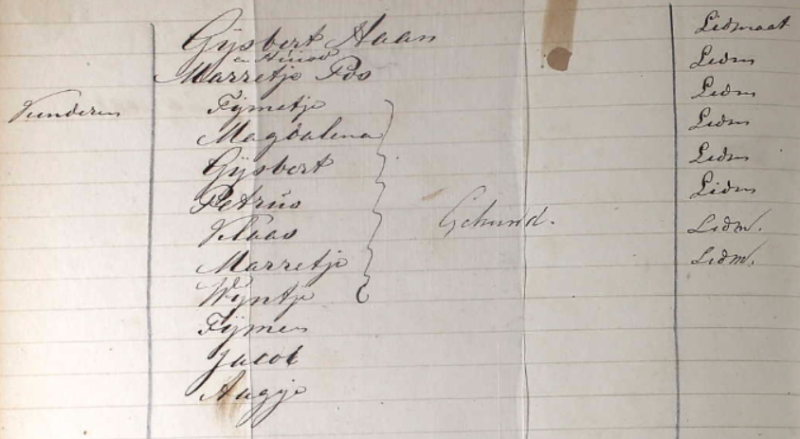 Gijsbert Haan Lidmaat
en Huisv
Marretje Pos Lidm
Tijmetje Lidm
Magdalena Lidm
Gijsbert Lidm
Petrus Lidm
Klaas Gehuwd. Lidm.
Marretje Lidm.
Wijntje
Tijmen
Jacob
Aagje